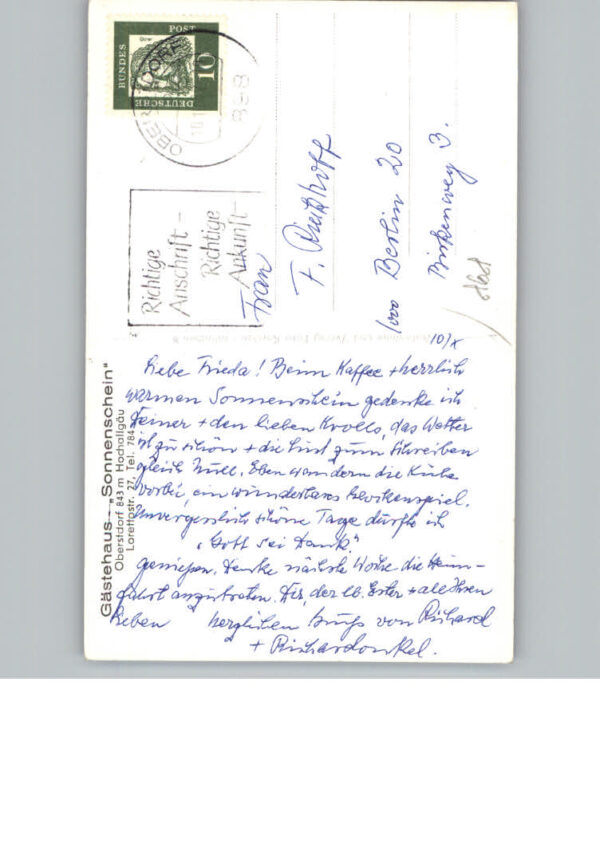 DEUTSCHE
BUNDES
POST
10
OBERSTDORF
898
Richtige
Anschrift –
Richtige
Ankunft
Frau
F.
1000 Berlin 20
Birkenweg 3.
10/X
Gästehaus „Sonnenschein"
Oberstdorf 843 m Hochallgäu
Lorettostr. 27, Tel. 784
Liebe Frieda! Beim Kaffee + herrlich
warmen Sonnenschein gedenke ich
Deiner + den lieben Krolls, das Wetter
ist zu schön + die Lust zum Schreiben
gleich Null. Eben wandern die Kühe
vorbei, ein wunderbares Glockenspiel.
Unvergesslich schöne Tage durfte ich
„Gott sei Dank"
genießen. Denke nächste Woche die Heim-
fahrt anzutreten. Dir, der lb. Ester + all Ihren
Lieben herzlichen Gruß von Richard
+ Richardonkel.